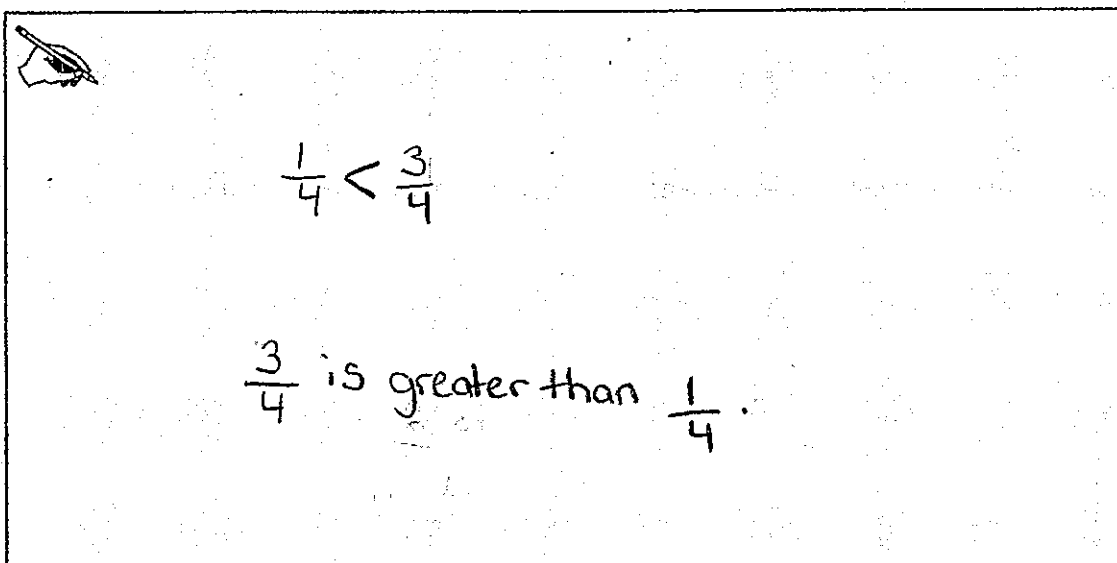 1/4 < 3/4
3/4 is greater than 1/4.